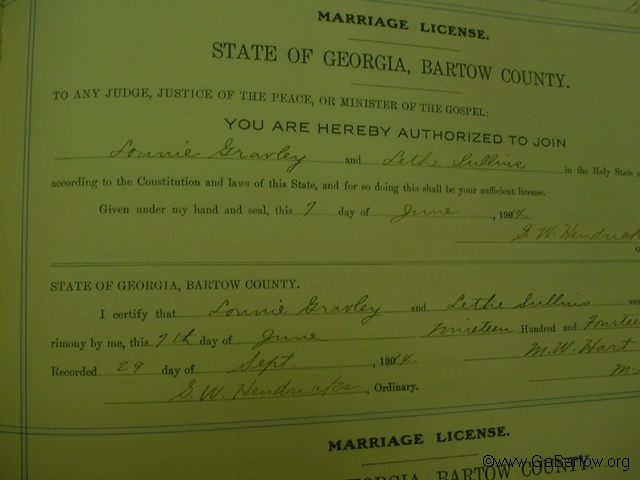 MARRIAGE LICENSE.
STATE OF GEORGIA, BARTOW COUNTY.
TO ANY JUDGE, JUSTICE OF THE PEACE, OR MINISTER OF THE GOSPEL:
YOU ARE HEREBY AUTHORIZED TO JOIN
Lonnie Gravley and Lethe Sullins in the Holy State
according to the Constitution and laws of this State, and for so doing this shall be your sufficient license.
Given under my hand and seal, this 7 day of June, 1914.
G. W. Hendricks
STATE OF GEORGIA, BARTOW COUNTY.
I certify that Lonnie Gravley and Lethe Sullins
rimony by me, this 7th day of June Nineteen Hundred and Fourtee
Recorded 29 day of Sept., 1914. M. W. Hart
G. W. Hendricks, Ordinary. M.
MARRIAGE LICENSE.
GEORGIA, BARTOW COUNTY.
©www.GaBartow.org